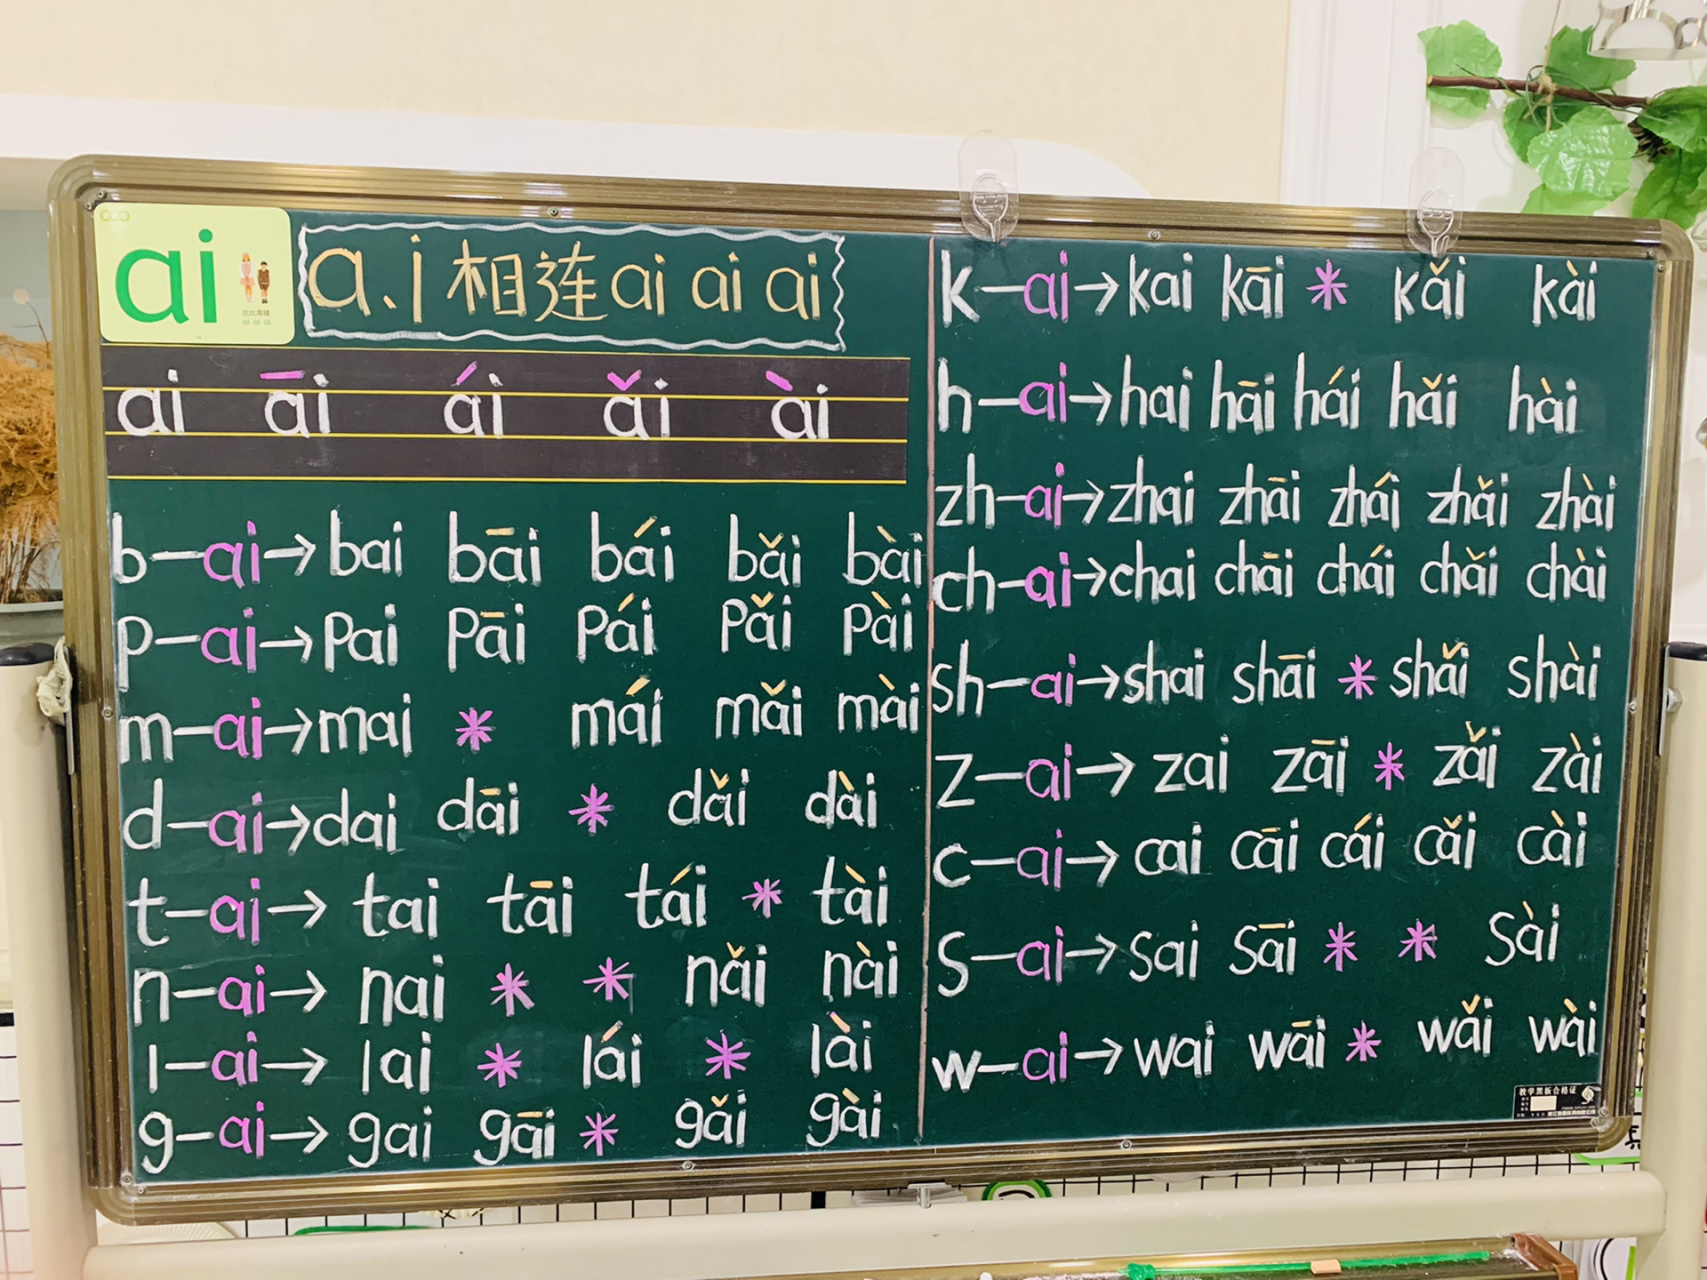 ai
a、i 相连 ai ai ai
ai āi ái ǎi ài
b—ai→bai bāi bái bǎi bài
p—ai→pai pāi pái pǎi pài
m—ai→mai * mái mǎi mài
d—ai→dai dāi * dǎi dài
t—ai→tai tāi tái * tài
n—ai→nai * * nǎi nài
l—ai→lai * lái * lài
g—ai→gai gāi * gǎi gài
k—ai→kai kāi * kǎi kài
h—ai→hai hāi hái hǎi hài
zh—ai→zhai zhāi zhái zhǎi zhài
ch—ai→chai chāi chái chǎi chài
sh—ai→shai shāi * shǎi shài
z—ai→zai zāi * zǎi zài
c—ai→cai cāi cái cǎi cài
s—ai→sai sāi * * sài
w—ai→wai wāi * wǎi wài
教学黑板合格证